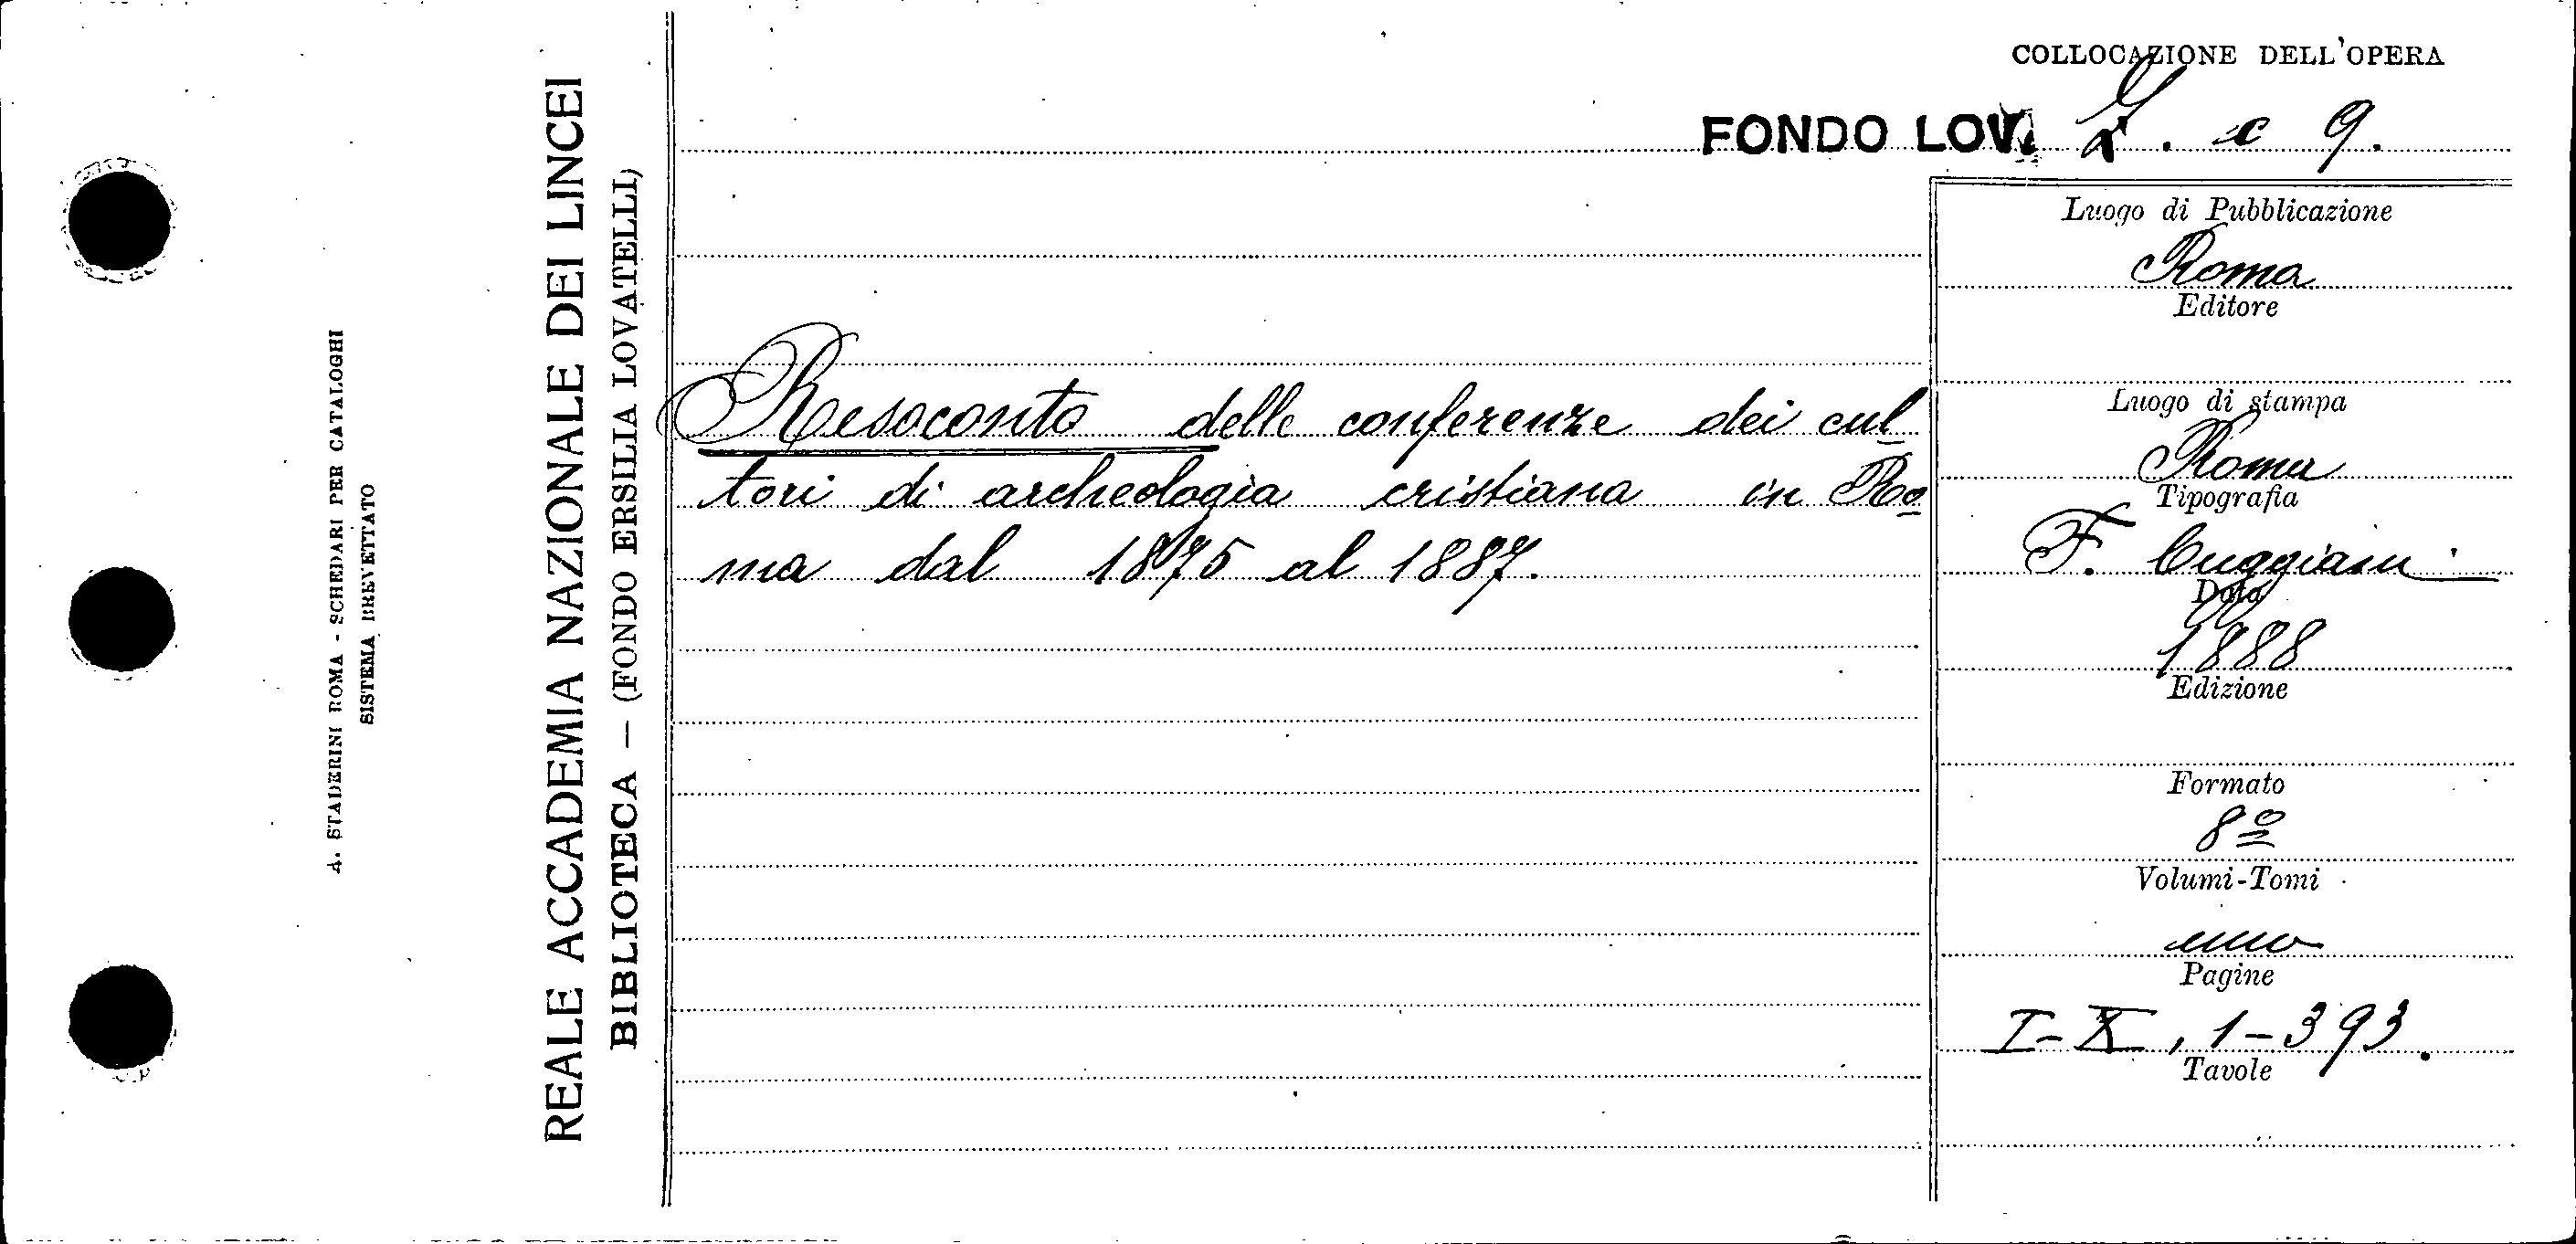 A. STADERINI ROMA - SCHEDARI PER CATALOGHI
SISTEMA BREVETTATO
REALE ACCADEMIA NAZIONALE DEI LINCEI
BIBLIOTECA — (FONDO ERSILIA LOVATELLI)
COLLOCAZIONE DELL'OPERA
FONDO LOV. c 9.
Resoconto delle conferenze dei cul
tori di archeologia cristiana in Ro
ma dal 1875 al 1887.
Luogo di Pubblicazione
Roma
Editore
Luogo di stampa
Roma
Tipografia
F. Cuggiani
Data
1888
Edizione
Formato
8º
Volumi-Tomi
uno
Pagine
I-X, 1-393.
Tavole